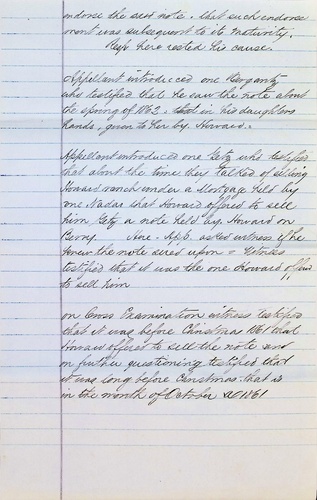 endorse the said note. that such endorse
ment was subsequent to its maturity.
Resp here rested his cause.
Appellant introduced one
who testified that he saw the note about
the spring of 1862, in his daughters
hands, given to her by Howard.
Appellant introduced one Getz who testified
that about the time they talked of selling
Howard ranch under a Mortgage held by
one Nadar that Howard offered to sell
him Getz a note held by Howard on
Berry. Here App. asked witness if he
knew the note sued upon = Witness
testified that it was the one Howard offered
to sell him
on Cross Examination witness testified
that it was before Christmas 1861 that
Howard offered to sell the note and
on further questioning testified that
it was long before Christmas. that is
in the month of October AD 1861